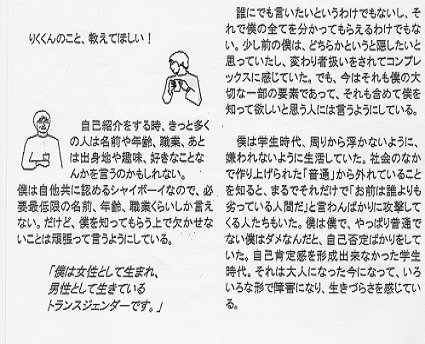 りくくんのこと、教えてほしい！
自己紹介をする時、きっと多く
の人は名前や年齢、職業、あと
は出身地や趣味、好きなことな
んかを言うのかもしれない。
僕は自他共に認めるシャイボーイなので、必
要最低限の名前、年齢、職業くらいしか言え
ない。だけど、僕を知ってもらう上で欠かせな
いことは頑張って言うようにしている。
「僕は女性として生まれ、
男性として生きている
トランスジェンダーです。」
誰にでも言いたいというわけでもないし、そ
れで僕の全てを分かってもらえるわけでもな
い。少し前の僕は、どちらかというと隠したいと
思っていたし、変わり者扱いをされてコンプレ
ックスに感じていた。でも、今はそれも僕の大
切な一部の要素であって、それも含めて僕を
知って欲しいと思う人には言うようにしている。
僕は学生時代、周りから浮かないように、
嫌われないように生活していた。社会のなか
で作り上げられた「普通」から外れていること
を知ると、まるでそれだけで「お前は誰よりも
劣っている人間だ」と言わんばかりに攻撃して
くる人たちもいた。僕は僕で、やっぱり普通で
ない僕はダメなんだと、自己否定ばかりをし
ていた。自己肯定感を形成出来なかった学生
時代。それは大人になった今になって、いろ
いろな形で障害になり、生きづらさを感じてい
る。